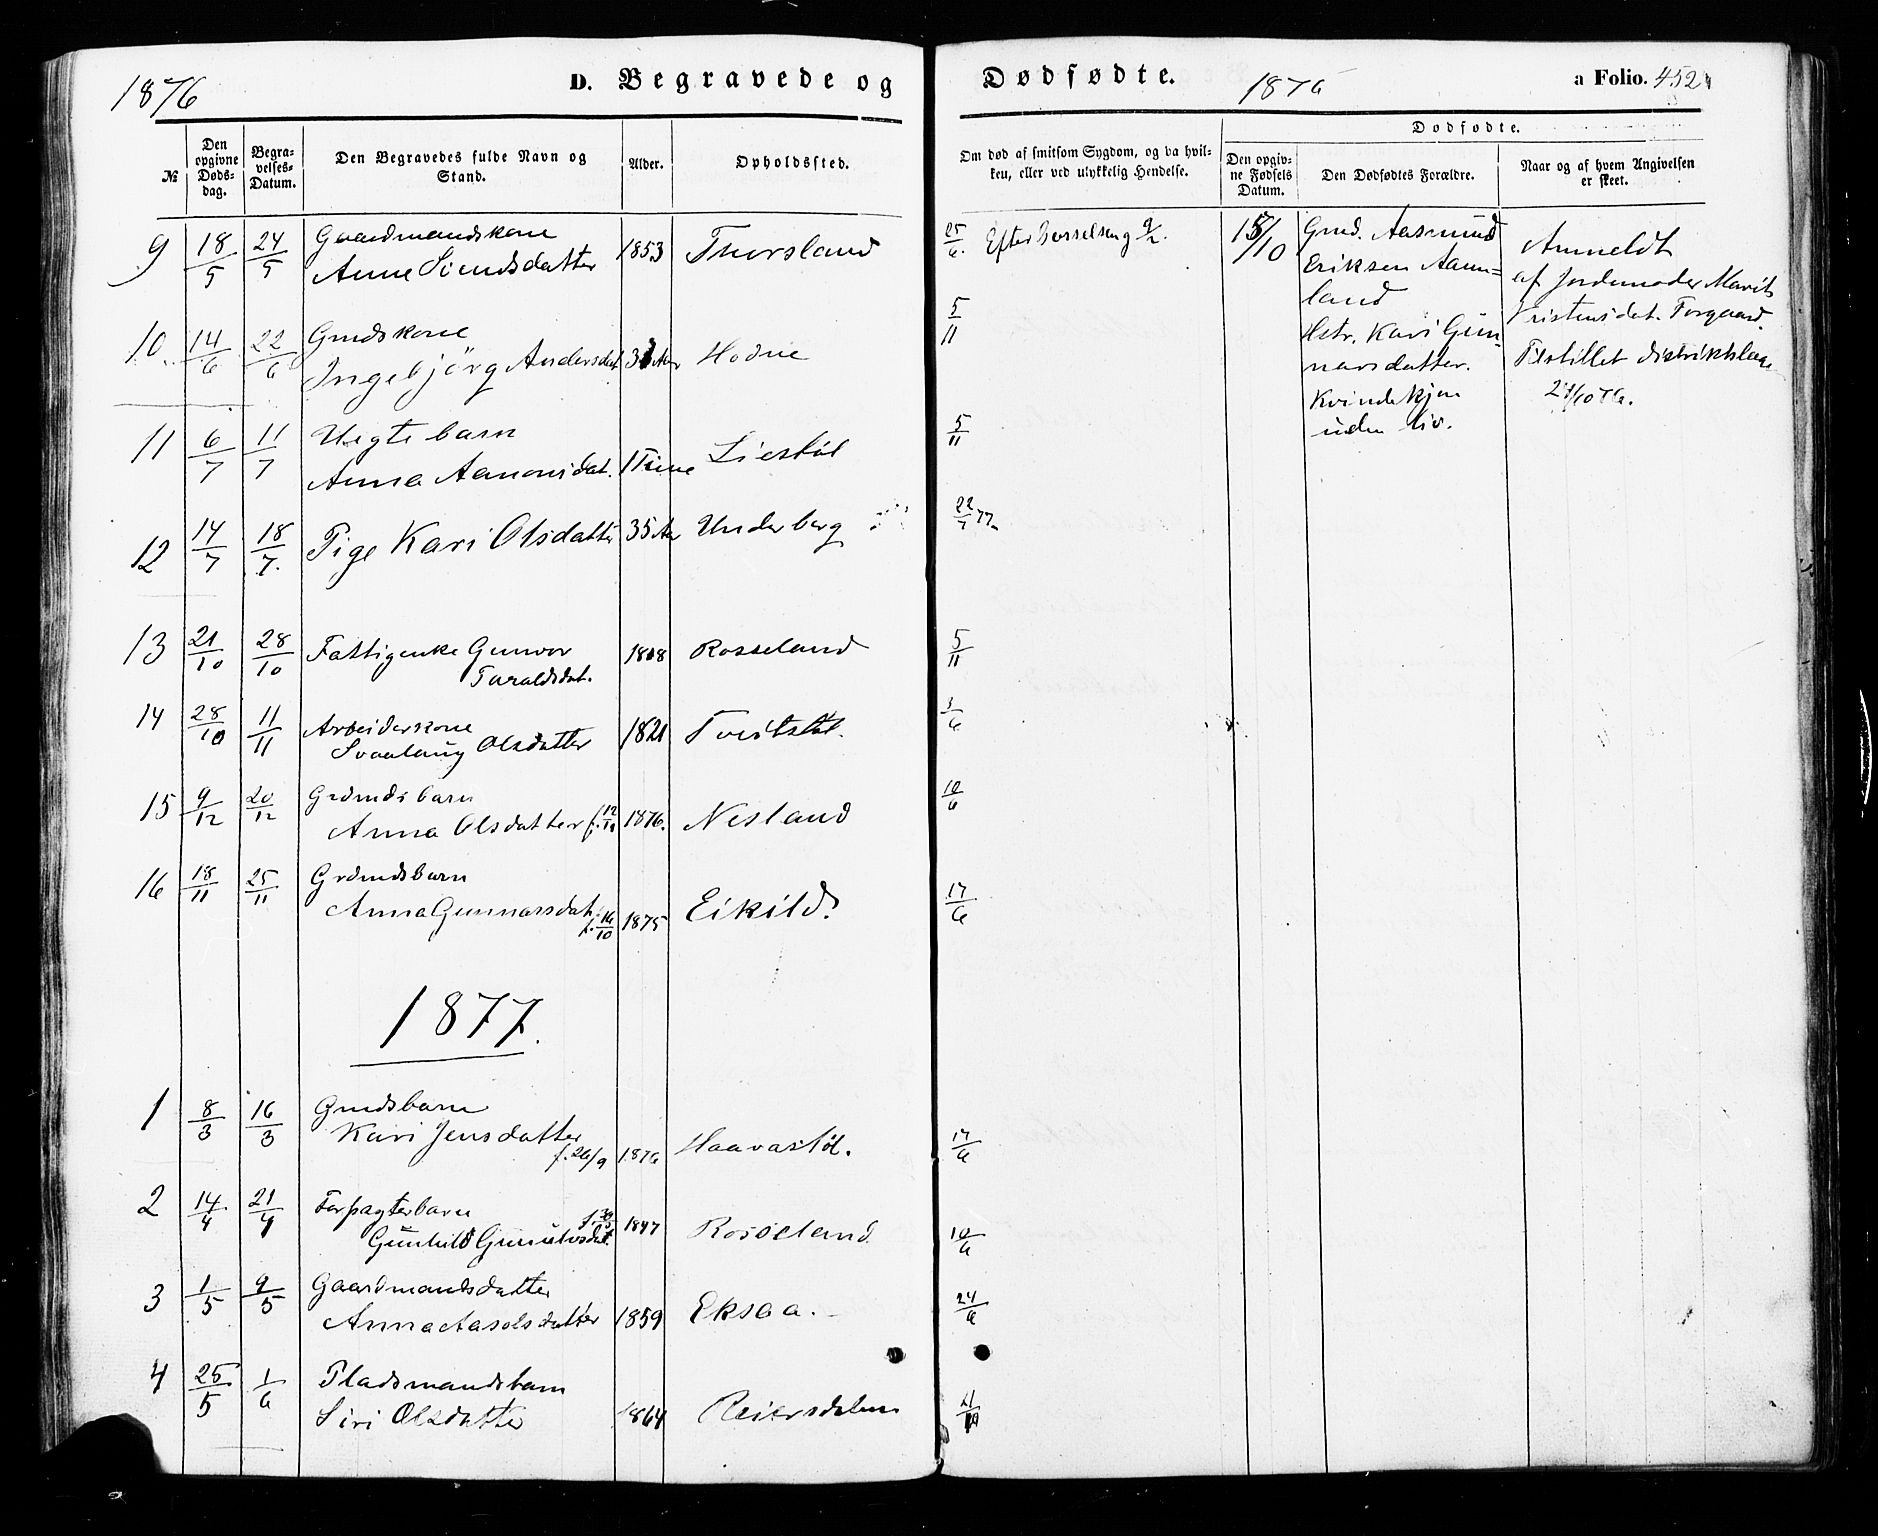 1876
D. Begravede og
Dødfødte.
1876
a Folio. 452
№
Den opgivne Døds-dag.
Begra-velses-Datum.
Den Begravedes fulde Navn og Stand.
Alder.
Opholdssted.
Om død af smitsom Sygdom, og da hvil-ken, eller ved ulykkelig Hendelse.
Dødfødte.
Den opgiv-ne Fødsels Datum.
Den Dødfødtes Forældre.
Naar og af hvem Angivelsen er skeet.
9 18/5 24/5 Gaardmandskone
Anne Svendsdatter 1853 Thorsland 25/6 Efter Barselseng
10 14/6 22/6 Gmdskone
Ingebjörg Andersdat Aar Hodne 5/11
11 6/7 11/7 Uegte barn
Anna Aanonsdat. 1 Time Liestöl 5/11
12 14/7 18/7. Pige Kari Olsdatter 35 Aar Underberg 22/7 77.
13 21/10 28/10 Fattigenke Gunvor
Taraldsdat. 1808 Rosseland 5/11
14 28/10 11/11 Arbeiderkone
Svaalaug Olsdatter 1821 Tveitstöl. 3/6
15 9/12 20/12 Grdmdsbarn
Anna Olsdatter f. 1876. Nesland 10/6
16 18/11 25/11 Grdmdsbarn
Anna Gunnarsdat. f. 16/10 1875 Eikild. 17/6
1877.
1 8/3 16/3 Gmdsbarn
Kari Jensdatter
f. 26/9 1876 Haavastöl. 17/6
2 14/4 21/4 Forpagterbarn
Gunhild Gunulvsdat. Rosseland 10/6
3 1/5 9/5 Gaardmandsdatter
Anna Aasolsdatter 1859 Eksaa. 24/6
4 25/5 1/6 Pladsmandsbarn
Siri Olsdatter 1864 Reiersdalen
15/10
Gmd. Aasmund
Eriksen Aann=
land
Hstr. Kari Gun-
narsdatter.
Kvindekjøn
uden Liv.
Anmeldt
af Jordemoder Marit
Kristensdat. Torgaard.
Tilstillet Distriktslæge